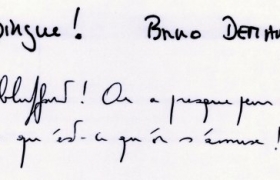 dingue! Bruno DEMAR
bluffant! On a presque peur
qu'est-ce qu'on s'amuse!